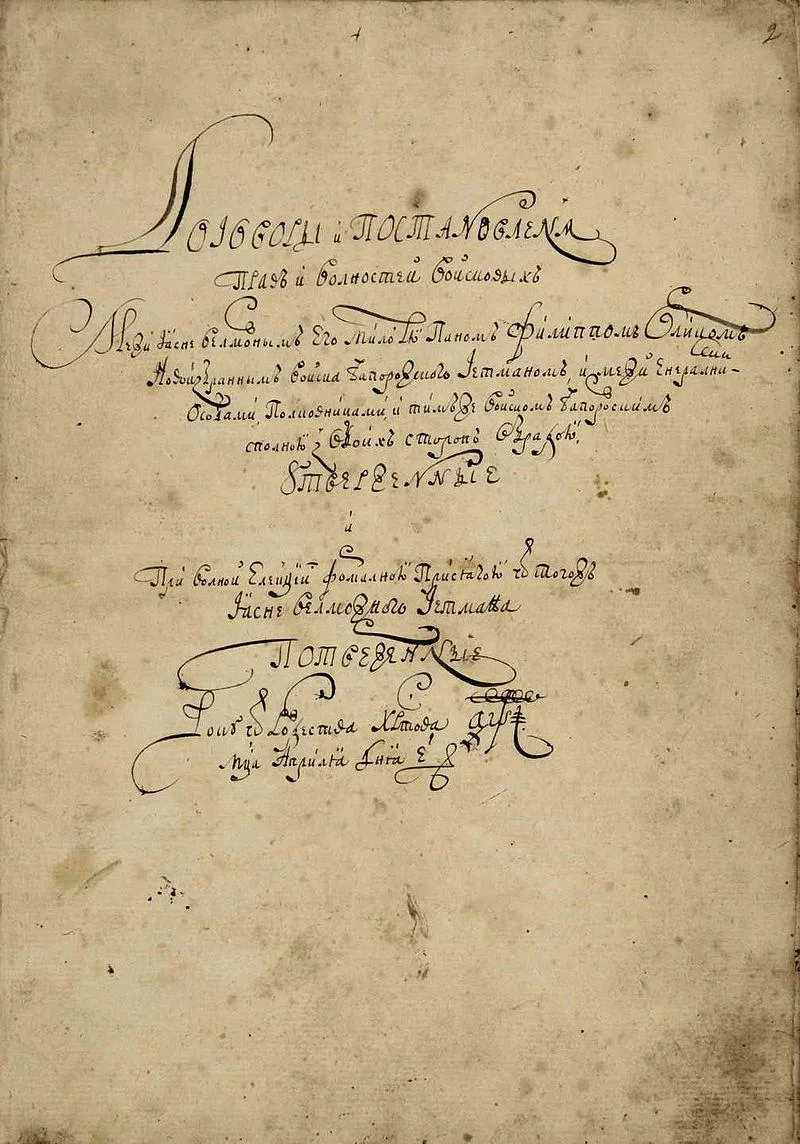 2
Договоры и Постановленя
Правъ и волностей войсковыхъ
Межи Ясне велможнымъ Его Млстю Паномъ Филиппомъ Орликомъ
Новоизбраннымъ войска Запорожского Гетманомъ, и межи Енерални-
ми
Особами, Полковниками, и тимъ же войскомъ Запорозкимъ
сполною з обоихъ сторонъ обрадою,
Утверженные
и
При волной Елекцїи формалною Присягою ѿ тогожъ
Ясне велможного Гетмана
Потверженные
Року ѿ Рожества Хрстова ҂аѱі
мця Априля дня е